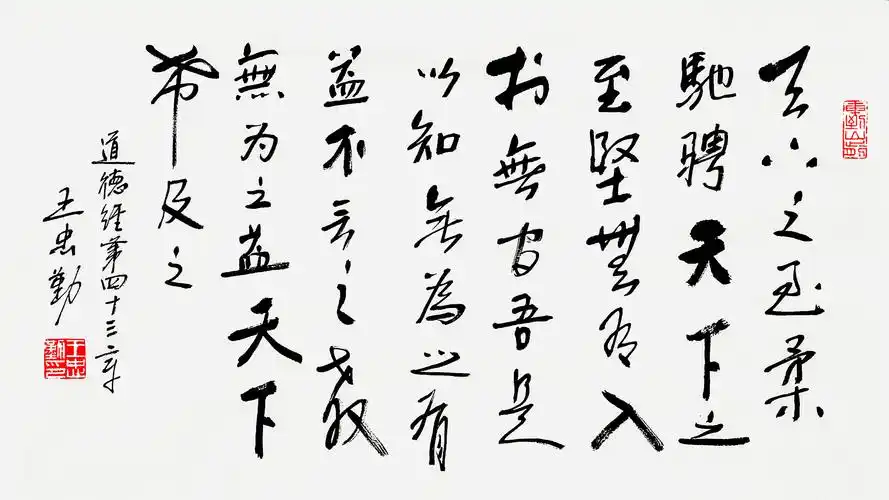 天下之至柔
馳聘天下之
至堅無有入
於無间吾是
以知無為之有
益不言之教
無为之益天下
希及之
道德經第四十三章
王忠勤